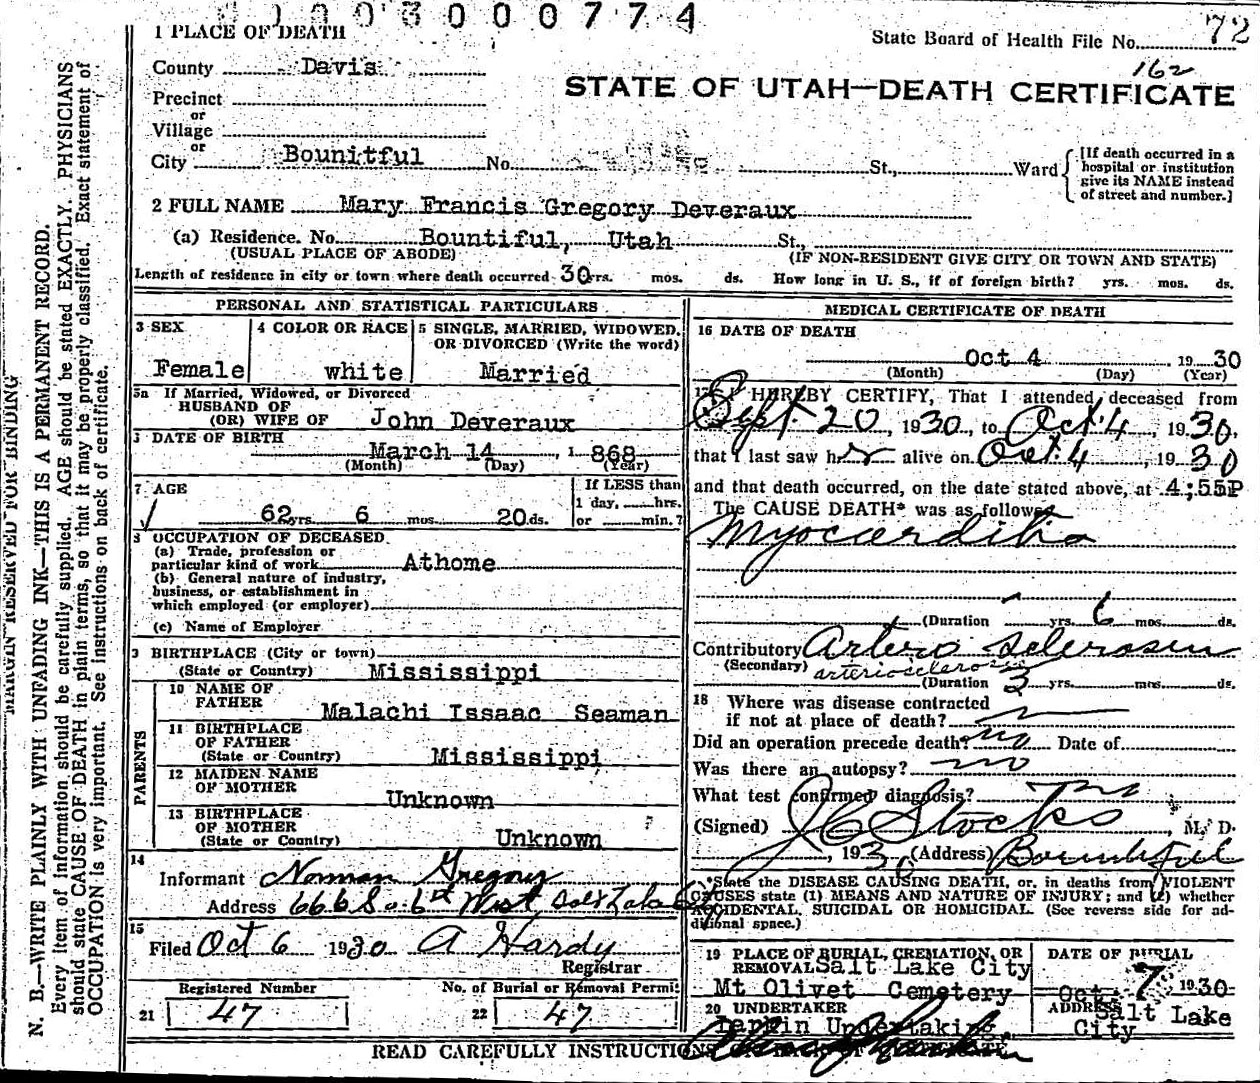 0003000774
72
State Board of Health File No.
162
STATE OF UTAH—DEATH CERTIFICATE
1 PLACE OF DEATH
County Davis
Precinct
or
Village
or
City Bounitful No. St., Ward
[If death occurred in a
hospital or institution
give its NAME instead
of street and number.]
2 FULL NAME Mary Francis Gregory Deveraux
(a) Residence. No. Bountiful, Utah St.,
(USUAL PLACE OF ABODE) (IF NON-RESIDENT GIVE CITY OR TOWN AND STATE)
Length of residence in city or town where death occurred 30 yrs. mos. ds. How long in U. S., if of foreign birth? yrs. mos. ds.
PERSONAL AND STATISTICAL PARTICULARS
3 SEX
Female
4 COLOR OR RACE
white
5 SINGLE, MARRIED, WIDOWED,
OR DIVORCED (Write the word)
Married
5a If Married, Widowed, or Divorced
HUSBAND OF
(OR) WIFE OF John Deveraux
DATE OF BIRTH
March 14, 1868
(Month) (Day) (Year)
7 AGE
62 yrs. 6 mos. 20 ds.
If LESS than
1 day, hrs.
or min.?
8 OCCUPATION OF DECEASED
(a) Trade, profession or
particular kind of work Athome
(b) General nature of industry,
business, or establishment in
which employed (or employer)
(c) Name of Employer
9 BIRTHPLACE (City or town)
(State or Country) Mississippi
PARENTS
10 NAME OF
FATHER Malachi Issaac Seaman
11 BIRTHPLACE
OF FATHER
(State or Country) Mississippi
12 MAIDEN NAME
OF MOTHER Unknown
13 BIRTHPLACE
OF MOTHER
(State or Country) Unknown
14
Informant Norman Gregory
Address 666 So. 6th West Salt Lake City
15
Filed Oct 6 1930 A Hardy
Registrar
Registered Number
21 47
No. of Burial or Removal Permit
22 47
MEDICAL CERTIFICATE OF DEATH
16 DATE OF DEATH
Oct 4 1930
(Month) (Day) (Year)
17 I HEREBY CERTIFY, That I attended deceased from
Sept. 20, 1930, to Oct. 4, 1930,
that I last saw her alive on Oct. 4, 1930
and that death occurred, on the date stated above, at 4;55P
The CAUSE DEATH* was as follows
Myocarditis
(Duration yrs. 6 mos. ds.
Contributory Artero Sclerosen
(Secondary) arteriosclerosis
(Duration 3 yrs. mos. ds.
18 Where was disease contracted
if not at place of death?
Did an operation precede death? no Date of
Was there an autopsy? no
What test confirmed diagnosis?
(Signed) J C Stocks, M. D.
, 1930 (Address) Bountiful
*State the DISEASE CAUSING DEATH, or, in deaths from VIOLENT
CAUSES state (1) MEANS AND NATURE OF INJURY; and (2) whether
ACCIDENTAL, SUICIDAL OR HOMICIDAL. (See reverse side for ad-
ditional space.)
19 PLACE OF BURIAL, CREMATION, OR
REMOVAL Salt Lake City
Mt Olivet Cemetery
DATE OF BURIAL
Oct. 7 1930
20 UNDERTAKER
Larkin Undertaking
ADDRESS Salt Lake
City
READ CAREFULLY INSTRUCTIONS
MARGIN RESERVED FOR BINDING
N. B.—WRITE PLAINLY WITH UNFADING INK—THIS IS A PERMANENT RECORD.
Every item of information should be carefully supplied. AGE should be stated EXACTLY. PHYSICIANS
should state CAUSE OF DEATH in plain terms, so that it may be properly classified. Exact statement of
OCCUPATION is very important. See instructions on back of certificate.